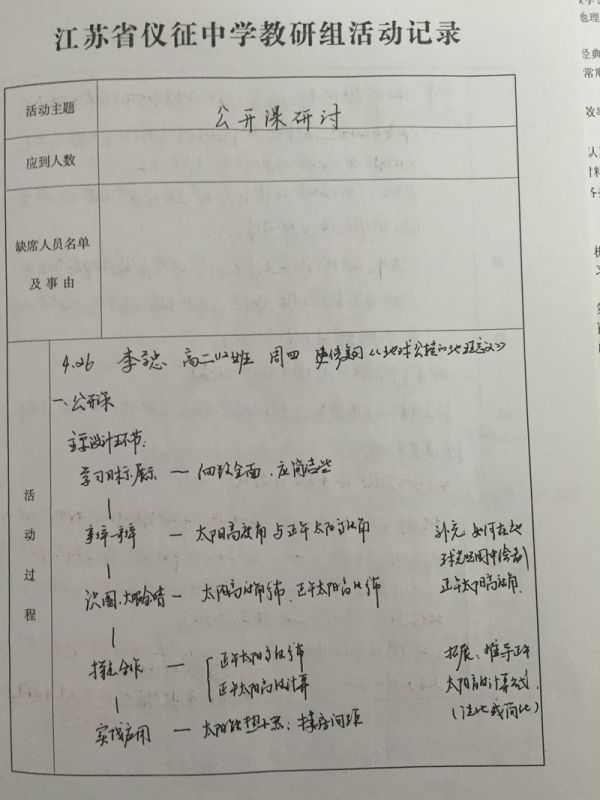 江苏省仪征中学教研组活动记录
活动主题
公开课研讨
应到人数
缺席人员名单
及事由
活动过程
4.26 李 高二(12)班 周四 《地球公转的地理意义》
一、公开课
主要设计环节:
学习目标展示 — 细致全面,应简洁些
辨一辨 — 太阳高度角与正午太阳高度角
补充:如何在地
球光照图中绘制
正午太阳高度角
识图、大眼睛 — 太阳高度角分布、正午太阳高度分布
探究合作 — 正午太阳高度分布
正午太阳高度计算
拓展:推导正午
太阳高度计算公式
实践应用 — 太阳能热水器;楼房间距